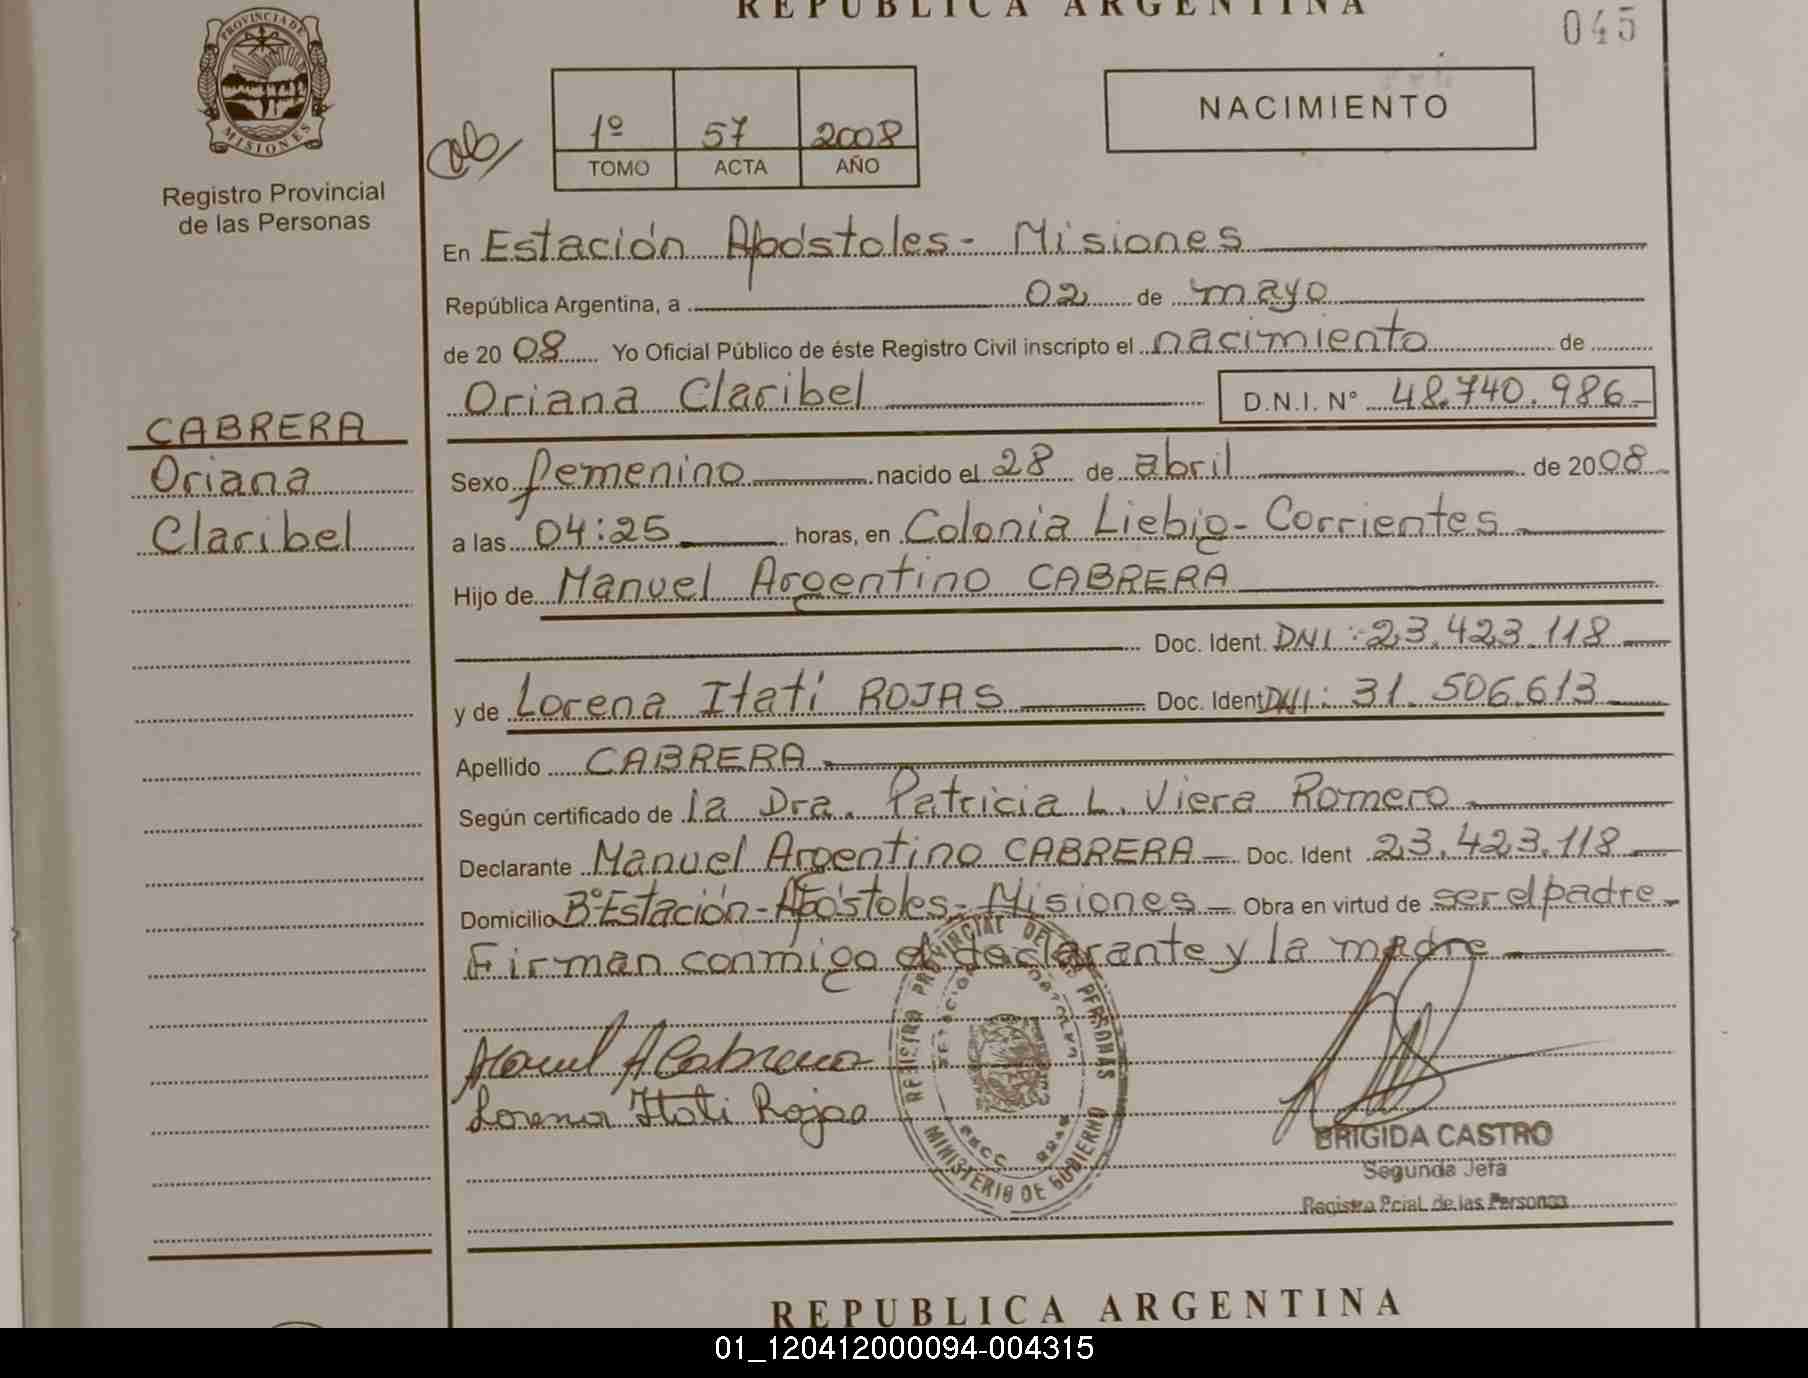 REPUBLICA ARGENTINA
045
PROVINCIA DE MISIONES
Registro Provincial
de las Personas
1º 57 2008
TOMO ACTA AÑO
NACIMIENTO
En Estación Apóstoles - Misiones
República Argentina, a 02 de mayo
de 20 08 Yo Oficial Público de éste Registro Civil inscripto el nacimiento de
Oriana Claribel D.N.I. N° 48.740.986
CABRERA
Oriana
Claribel
Sexo femenino nacido el 28 de abril de 2008
a las 04:25 horas, en Colonia Liebig - Corrientes
Hijo de Manuel Argentino CABRERA
Doc. Ident. DNI: 23.423.118
y de Lorena Itatí ROJAS Doc. Ident DNI: 31.506.613
Apellido CABRERA
Según certificado de la Dra. Patricia L. Viera Romero
Declarante Manuel Argentino CABRERA Doc. Ident 23.423.118
Domicilio B°Estación - Apóstoles - Misiones Obra en virtud de ser el padre
Firman conmigo el declarante y la madre
REGISTRO PROVINCIAL DE LAS PERSONAS
MINISTERIO DE GOBIERNO
Manuel A Cabrera
Lorena Itati Rojas
BRIGIDA CASTRO
Segunda Jefa
Registro Pcial. de las Personas
REPUBLICA ARGENTINA
01_120412000094-004315